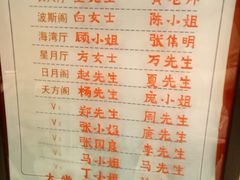 波斯阁 白女士 陈小姐
海湾厅 顾小姐 张伟明
星月厅 方女士 万先生
日月阁 赵先生 夏先生
天方阁 杨先生 庞小姐
V 郑先生 周先生
V 张小姐 唐先生
V 张国良 李先生
V 马小姐 马先生
丁小姐